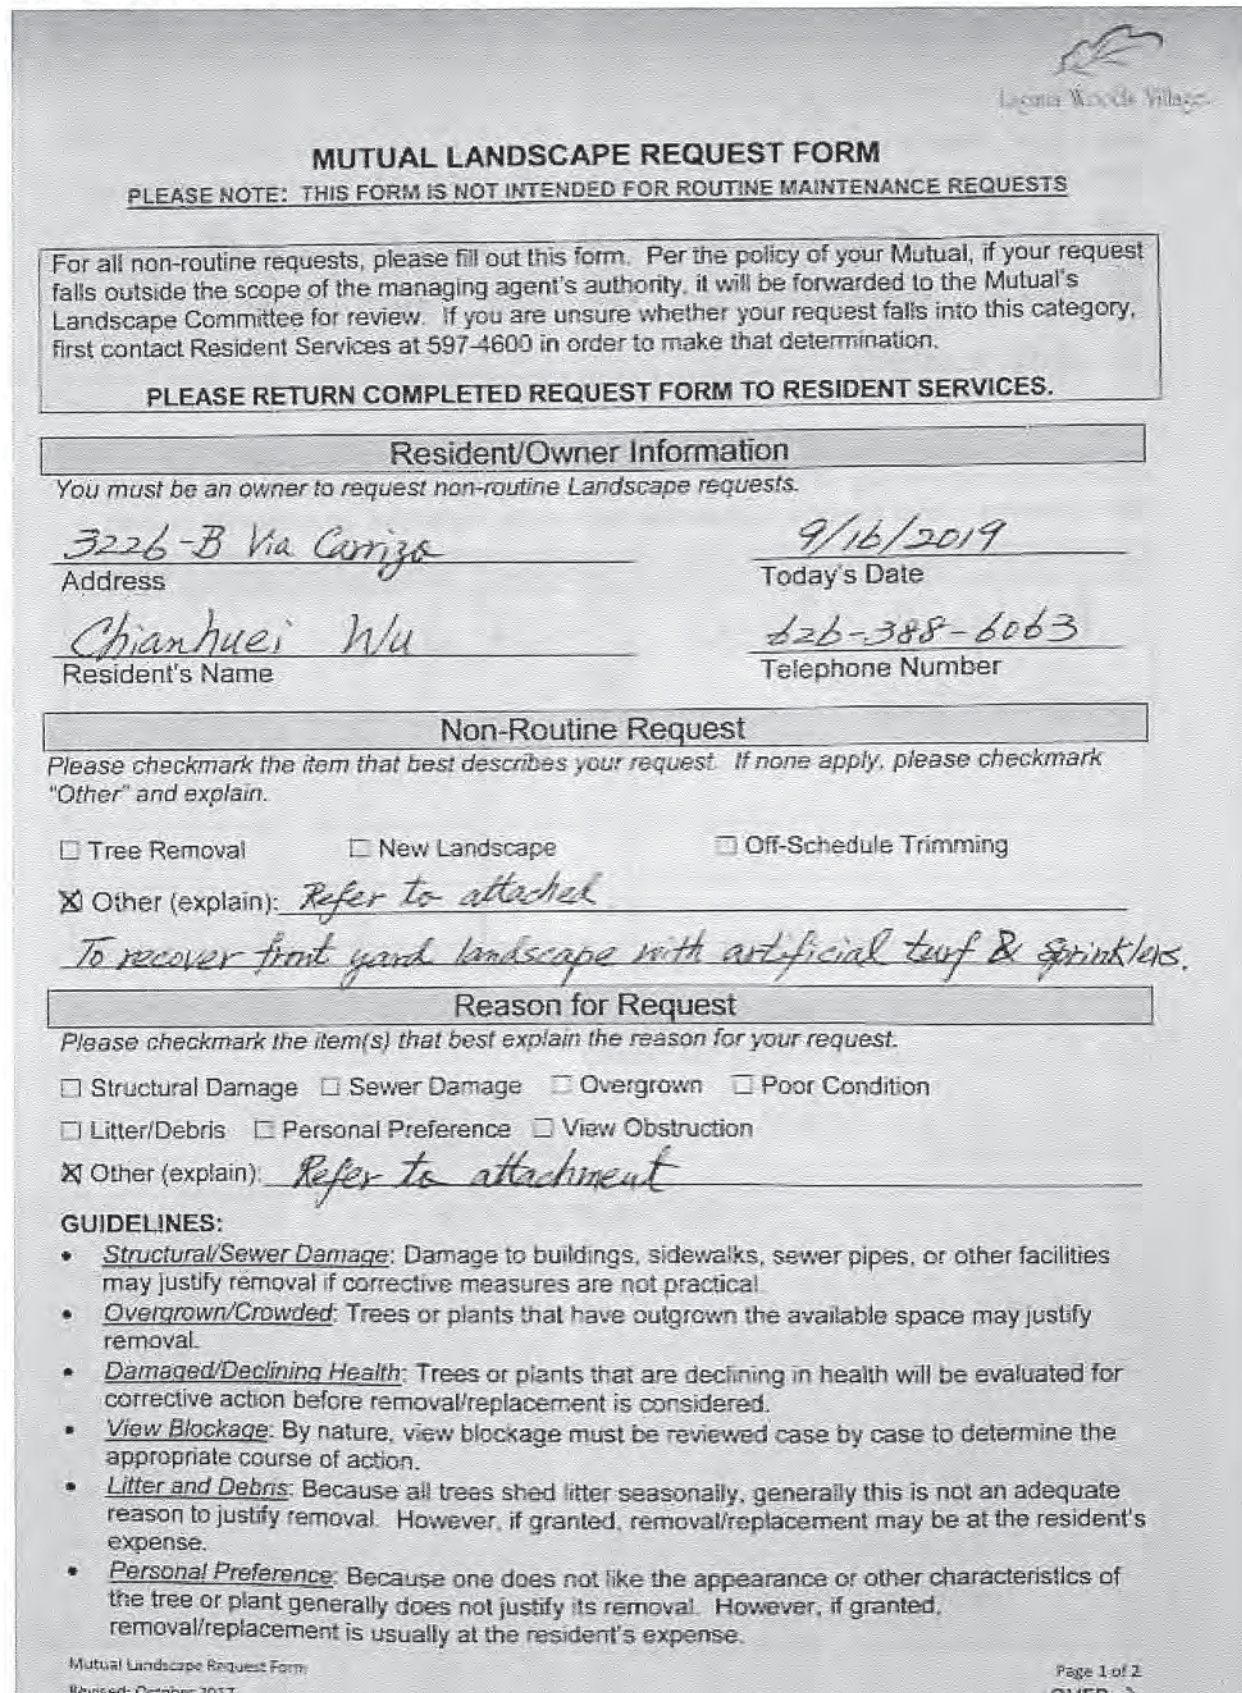 Laguna Woods Village
MUTUAL LANDSCAPE REQUEST FORM
PLEASE NOTE: THIS FORM IS NOT INTENDED FOR ROUTINE MAINTENANCE REQUESTS
For all non-routine requests, please fill out this form. Per the policy of your Mutual, if your request
falls outside the scope of the managing agent's authority, it will be forwarded to the Mutual's
Landscape Committee for review. If you are unsure whether your request falls into this category,
first contact Resident Services at 597-4600 in order to make that determination.
PLEASE RETURN COMPLETED REQUEST FORM TO RESIDENT SERVICES.
Resident/Owner Information
You must be an owner to request non-routine Landscape requests.
3226-B Via Carrizo 9/16/2019
Address Today's Date
Chianhuei Wu 626-388-6063
Resident's Name Telephone Number
Non-Routine Request
Please checkmark the item that best describes your request. If none apply, please checkmark
"Other" and explain.
☐ Tree Removal ☐ New Landscape ☐ Off-Schedule Trimming
☒ Other (explain): Refer to attached
To recover front yard landscape with artificial turf & sprinklers.
Reason for Request
Please checkmark the item(s) that best explain the reason for your request.
☐ Structural Damage ☐ Sewer Damage ☐ Overgrown ☐ Poor Condition
☐ Litter/Debris ☐ Personal Preference ☐ View Obstruction
☒ Other (explain): Refer to attachment
GUIDELINES:
• Structural/Sewer Damage: Damage to buildings, sidewalks, sewer pipes, or other facilities
may justify removal if corrective measures are not practical.
• Overgrown/Crowded: Trees or plants that have outgrown the available space may justify
removal.
• Damaged/Declining Health: Trees or plants that are declining in health will be evaluated for
corrective action before removal/replacement is considered.
• View Blockage: By nature, view blockage must be reviewed case by case to determine the
appropriate course of action.
• Litter and Debris: Because all trees shed litter seasonally, generally this is not an adequate
reason to justify removal. However, if granted, removal/replacement may be at the resident's
expense.
• Personal Preference: Because one does not like the appearance or other characteristics of
the tree or plant generally does not justify its removal. However, if granted,
removal/replacement is usually at the resident's expense.
Mutual Landscape Request Form Page 1 of 2
Revised: October 2017 OVER →